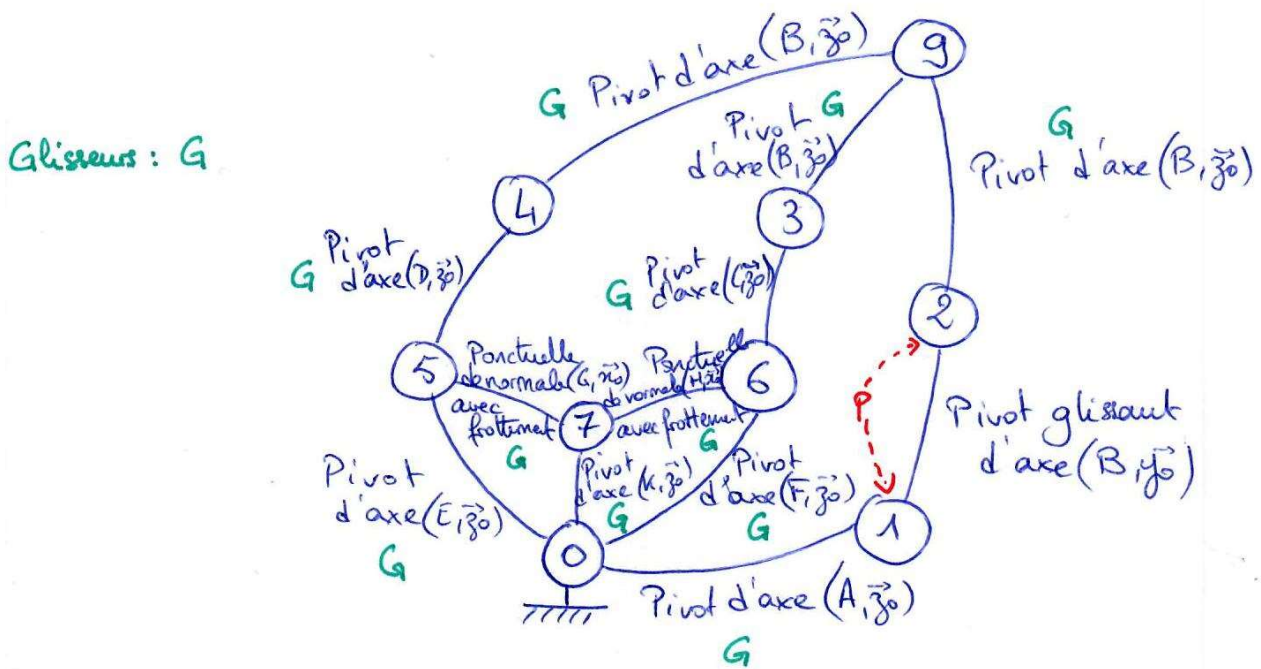 G Pivot d'axe (B, z₀)
9
Glisseurs : G
Pivot G
d'axe (B, z₀)
G
Pivot d'axe (B, z₀)
4
3
Pivot
G d'axe (D, z₀)
Pivot
G d'axe (C, z₀)
2
5
Ponctuelle
de normale (G, x₀)
avec
frottement
G
Ponctuelle
de normale (H, x₀)
avec frottement
G
6
7
P
Pivot glissant
d'axe (B, y₀)
Pivot
d'axe (E, z₀)
G
Pivot
d'axe (K, z₀)
G
Pivot
d'axe (F, z₀)
G
1
0
Pivot d'axe (A, z₀)
G